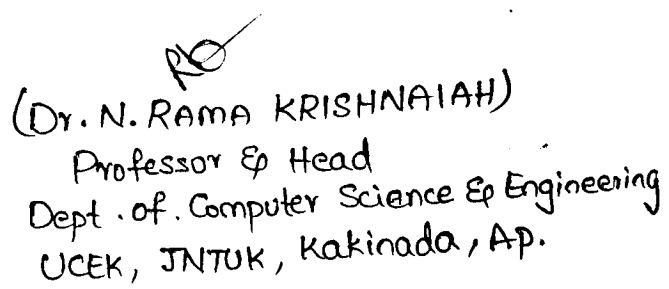 (Dr. N. RAMA KRISHNAIAH)
Professor & Head
Dept. of. Computer Science & Engineering
UCEK, JNTUK, Kakinada, AP.